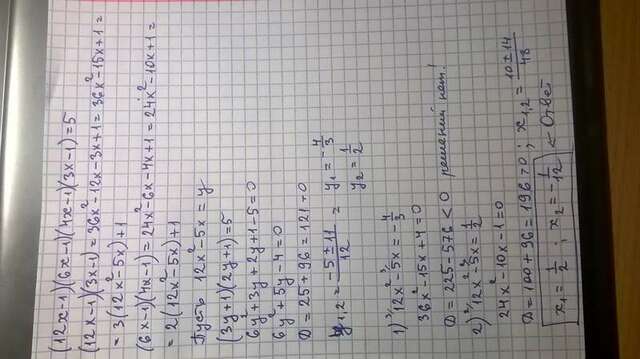 (12x-1)(6x-1)(4x-1)(3x-1)=5
(12x-1)(3x-1)=36x²-12x-3x+1=36x²-15x+1=
=3(12x²-5x)+1
(6x-1)(4x-1)=24x²-6x-4x+1=24x²-10x+1=
=2(12x²-5x)+1
Пусть 12x²-5x=y
(3y+1)(2y+1)=5
6y²+3y+2y+1-5=0
6y²+5y-4=0
D=25+96=121>0
y₁,₂=(-5±11)/12= y₁=-4/3
y₂=1/2
1) ³/12x²-³/5x=-4/3
36x²-15x+4=0
D=225-576<0 решений нет!
2) ²/12x²-²/5x=1/2
24x²-10x-1=0
D=100+96=196>0; x₁,₂=(10±14)/48
x₁=1/2; x₂=-1/12 ← Ответ